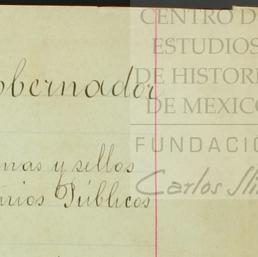 CENTRO D
ESTUDIOS
DE HISTORI
DE MEXICO
FUNDACIÓ
Carlos Sli
obernador
mas y sellos
arios Públicos